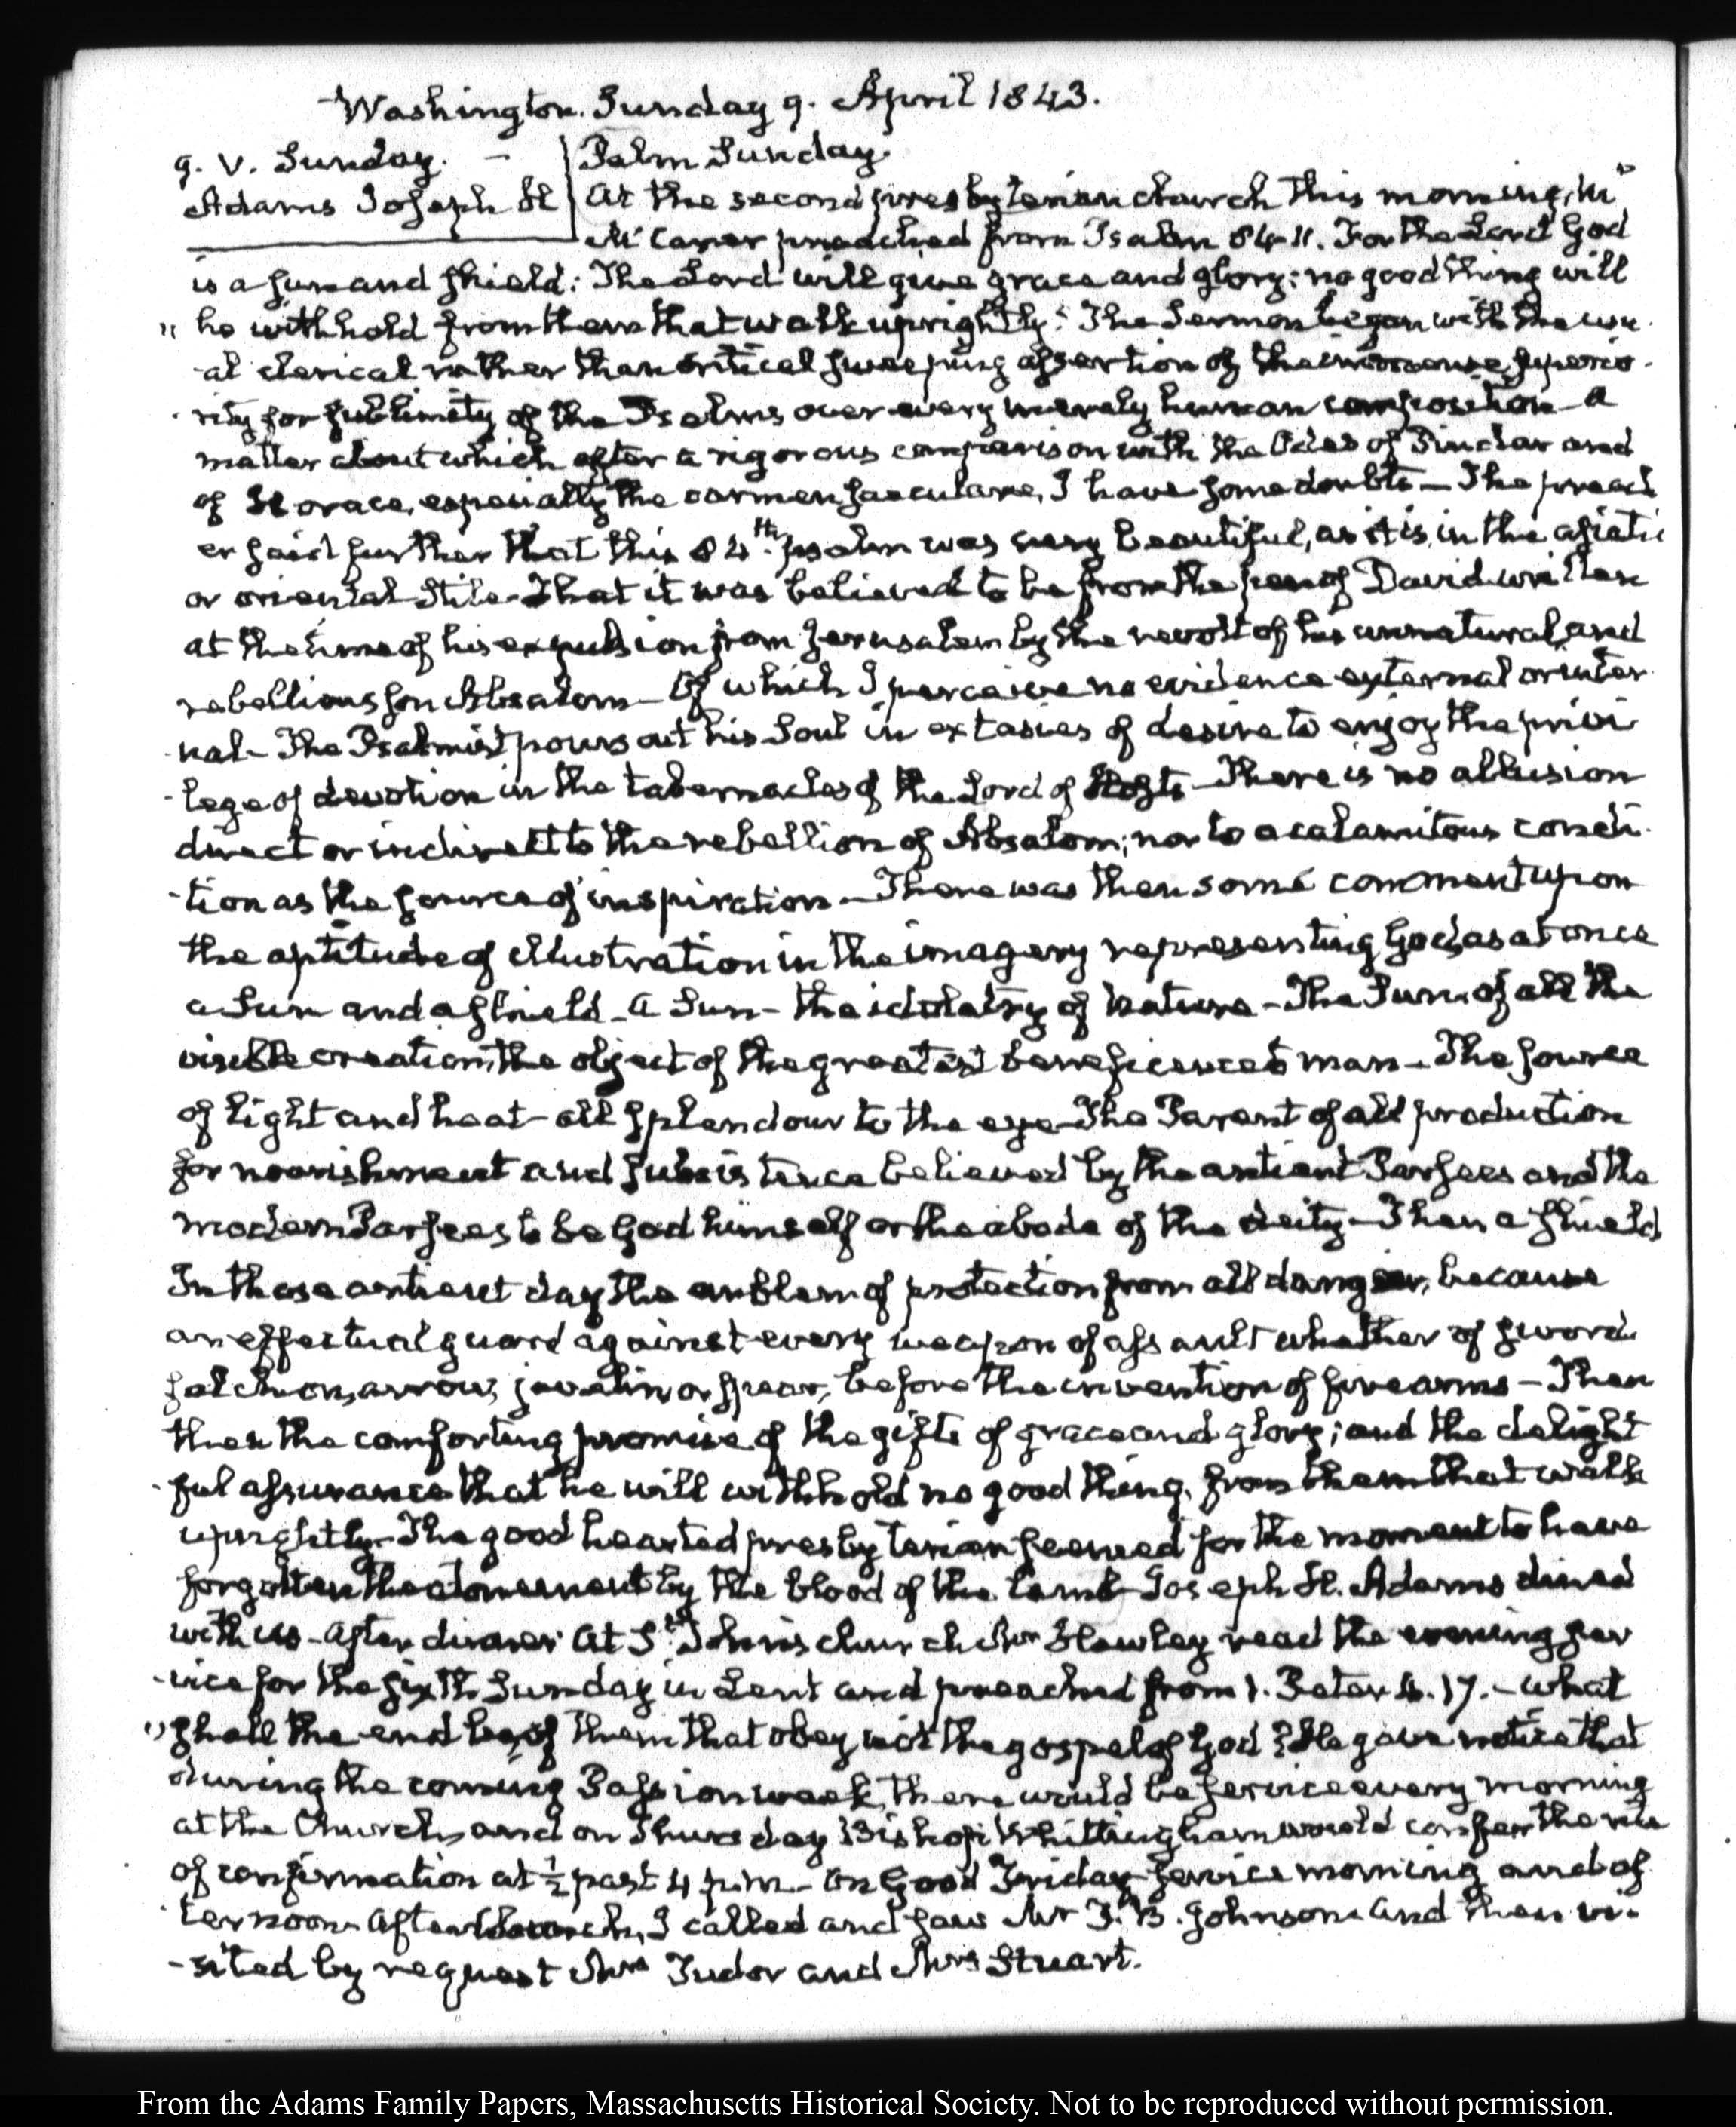 Washington. Sunday 9. April 1843.
9. V. Sunday. -
Adams Joseph H
Palm Sunday.
At the second presbyterian church this morning, Mr
preached from Psalm 84-11. For the Lord God
is a sun and shield: The Lord will give grace and glory: no good thing will
" he withhold from them that walk uprightly." The Sermon began with the usu-
al clerical rather than critical sweeping assertion of the immense superio-
rity for sublimity of the Psalms over every merely human composition - a
matter about which after a rigorous comparison with the Odes of Pindar and
of Horace, especially the carmen saeculare, I have some doubts - The preach
er said further that this 84th. psalm was very beautiful, as it is, in the asiatic
or oriental stile - That it was believed to be from the pen of David written
at the time of his expulsion from Jerusalem by the revolt of his unnatural and
rebellious son Absalom - Of which I perceive no evidence external or inter-
nal - The Psalmist pours out his Soul in extasies of desire to enjoy the privi
-lege of devotion in the tabernacles of the Lord of Hosts - There is no allusion
direct or indirect to the rebellion of Absalom; nor to a calamitous condi-
-tion as the source of inspiration - There was then some comment upon
the aptitude of illustration in the imagery representing God, as at once
a Sun and a shield - a Sun - the idolatry of Nature - The Sun of all the
visible creation, the object of the greatest beneficence to man - The source
of light and heat - all splendour to the eye - The Parent of all production
for nourishment and subsistence believed by the antient Parsees and the
modern Parsees to be God himself or the abode of the deity - Then a shield,
In those antient day the emblem of protection from all danger, because
an effectual guard against every weapon of assault whether of sword
falchion, arrow, javelin or spear, before the invention of firearms - Then
then the comforting promise of the gifts of grace and glory; and the delight
-ful assurance that he will withhold no good thing, from them that walk
uprightly - The good hearted presbyterian seemed for the moment to have
forgotten the atonement by the blood of the lamb - Joseph H. Adams dined
with us - After dinner At St. John's church Mr Hawley read the evening ser
-vice for the sixth Sunday in Lent and preached from 1. Peter 4. 17. - what
" shall the end be, of them that obey not the gospel of God? He gave notice that
during the coming Passion week, there would be service every morning
at the Church, and on Thursday Bishop Whittingham would confer the rite
of confirmation at ½ past 4 p.m. - On Good Friday service morning and af
ternoon - After church, I called and saw Mr J. B. Johnson and then vi-
-sited by request Mrs Tudor and Mrs Stuart.
From the Adams Family Papers, Massachusetts Historical Society. Not to be reproduced without permission.